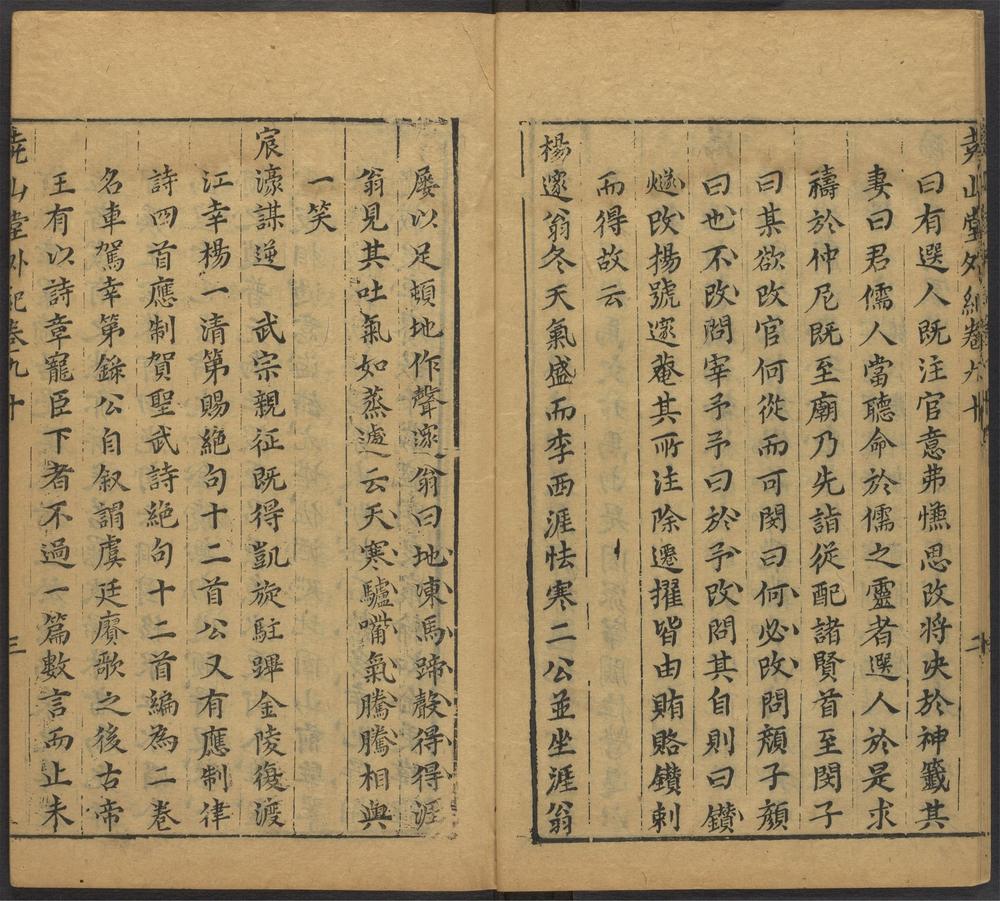 堯山堂外紀卷九十
曰有選人既注官意弗愜思改將决於神籤其
妻曰君儒人當聽命於儒之靈者選人於是求
禱於仲尼既至廟乃先詣從配諸賢首至閔子
曰某欲改官何從而可閔曰何必改問顏子顏
曰也不改問宰予予曰於予改問其自則曰鑽
燧改楊號邃菴其所注除遷擢皆由賄賂鑽刺
而得故云
楊邃翁冬天氣盛而李西涯怯寒二公並坐涯翁
屢以足頓地作聲邃翁曰地凍馬蹄聲得得涯
翁見其吐氣如蒸遽云天寒驢嘴氣騰騰相與
一笑
宸濠謀逆 武宗親征既得凱旋駐蹕金陵復渡
江幸楊一清第賜絶句十二首公又有應制律
詩四首應制賀聖武詩絶句十二首編為二卷
名車駕幸第錄公自叙謂虞廷賡歌之後古帝
王有以詩章寵臣下者不過一篇數言而止未
堯山堂外紀卷九十
三